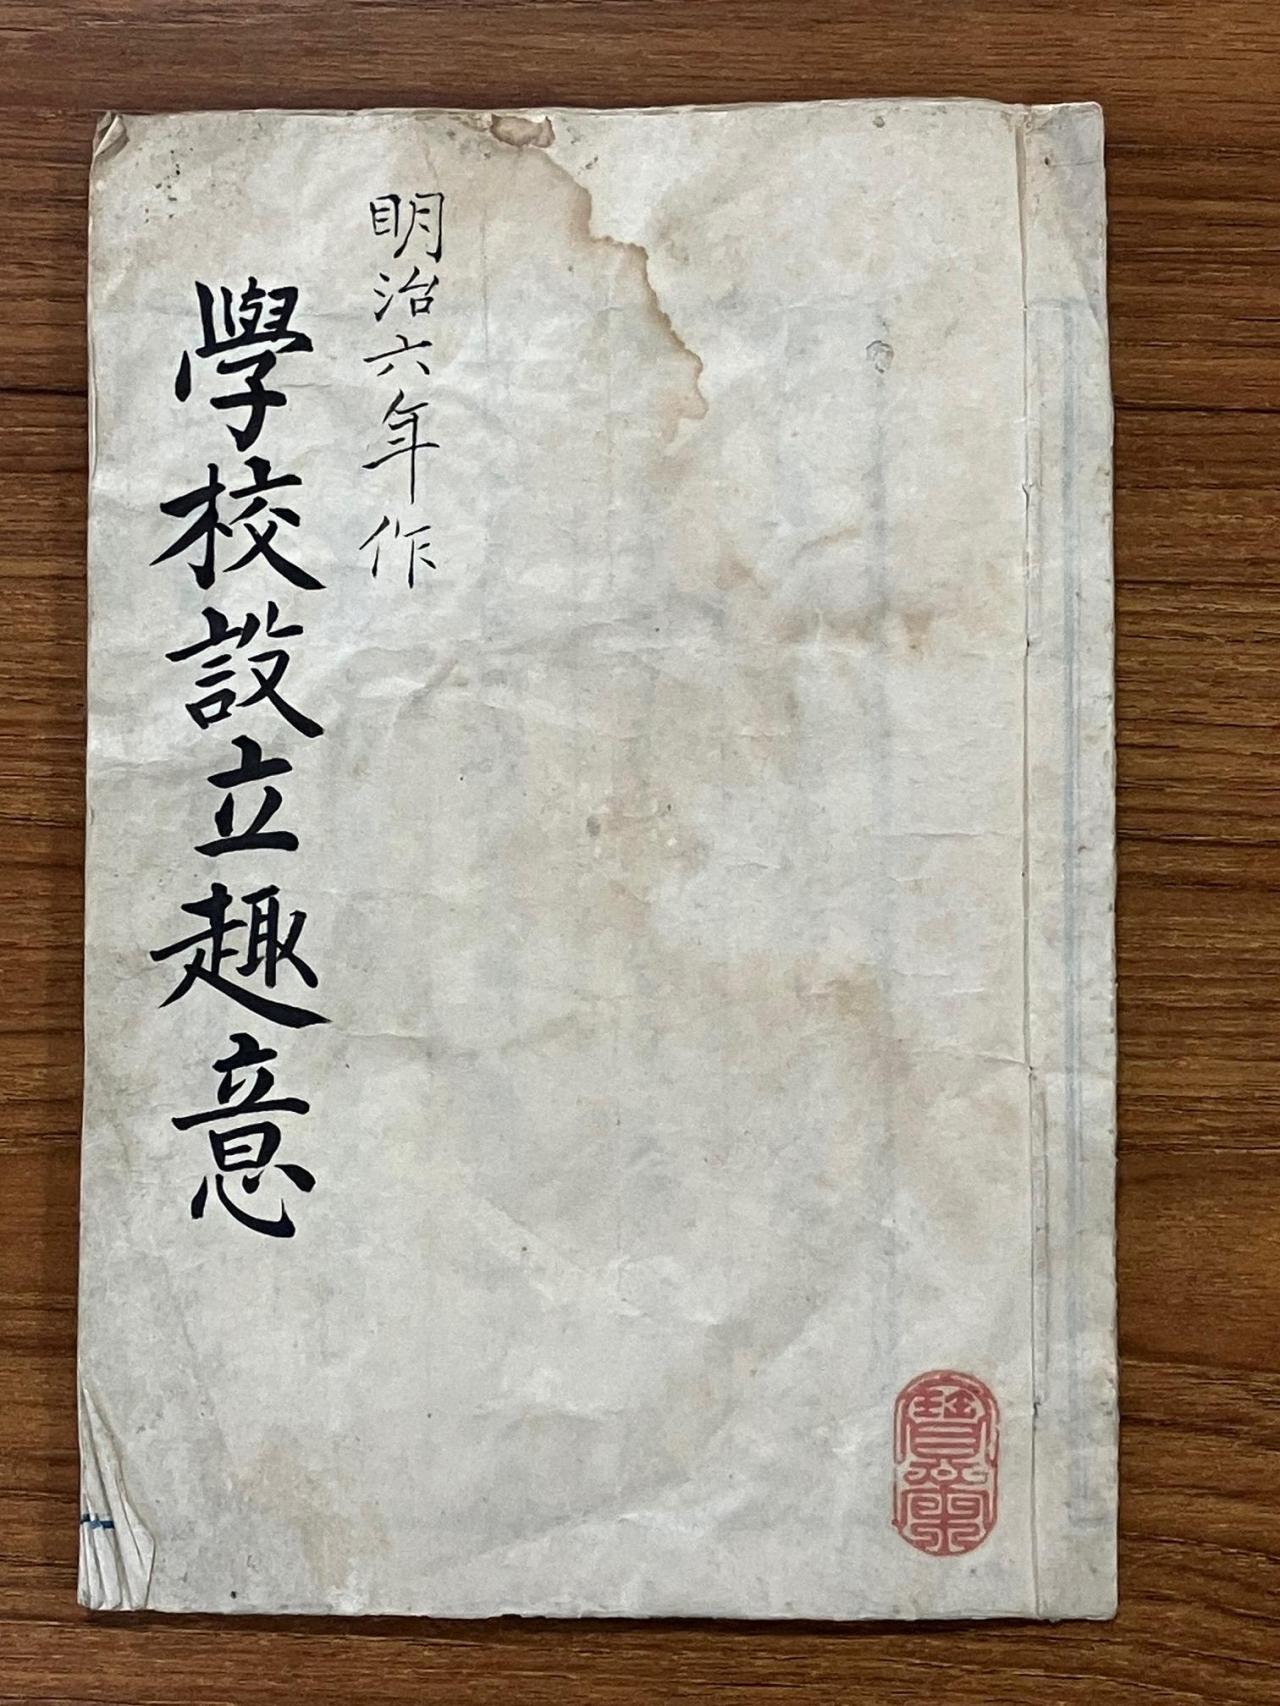 明治六年作
學校設立趣意